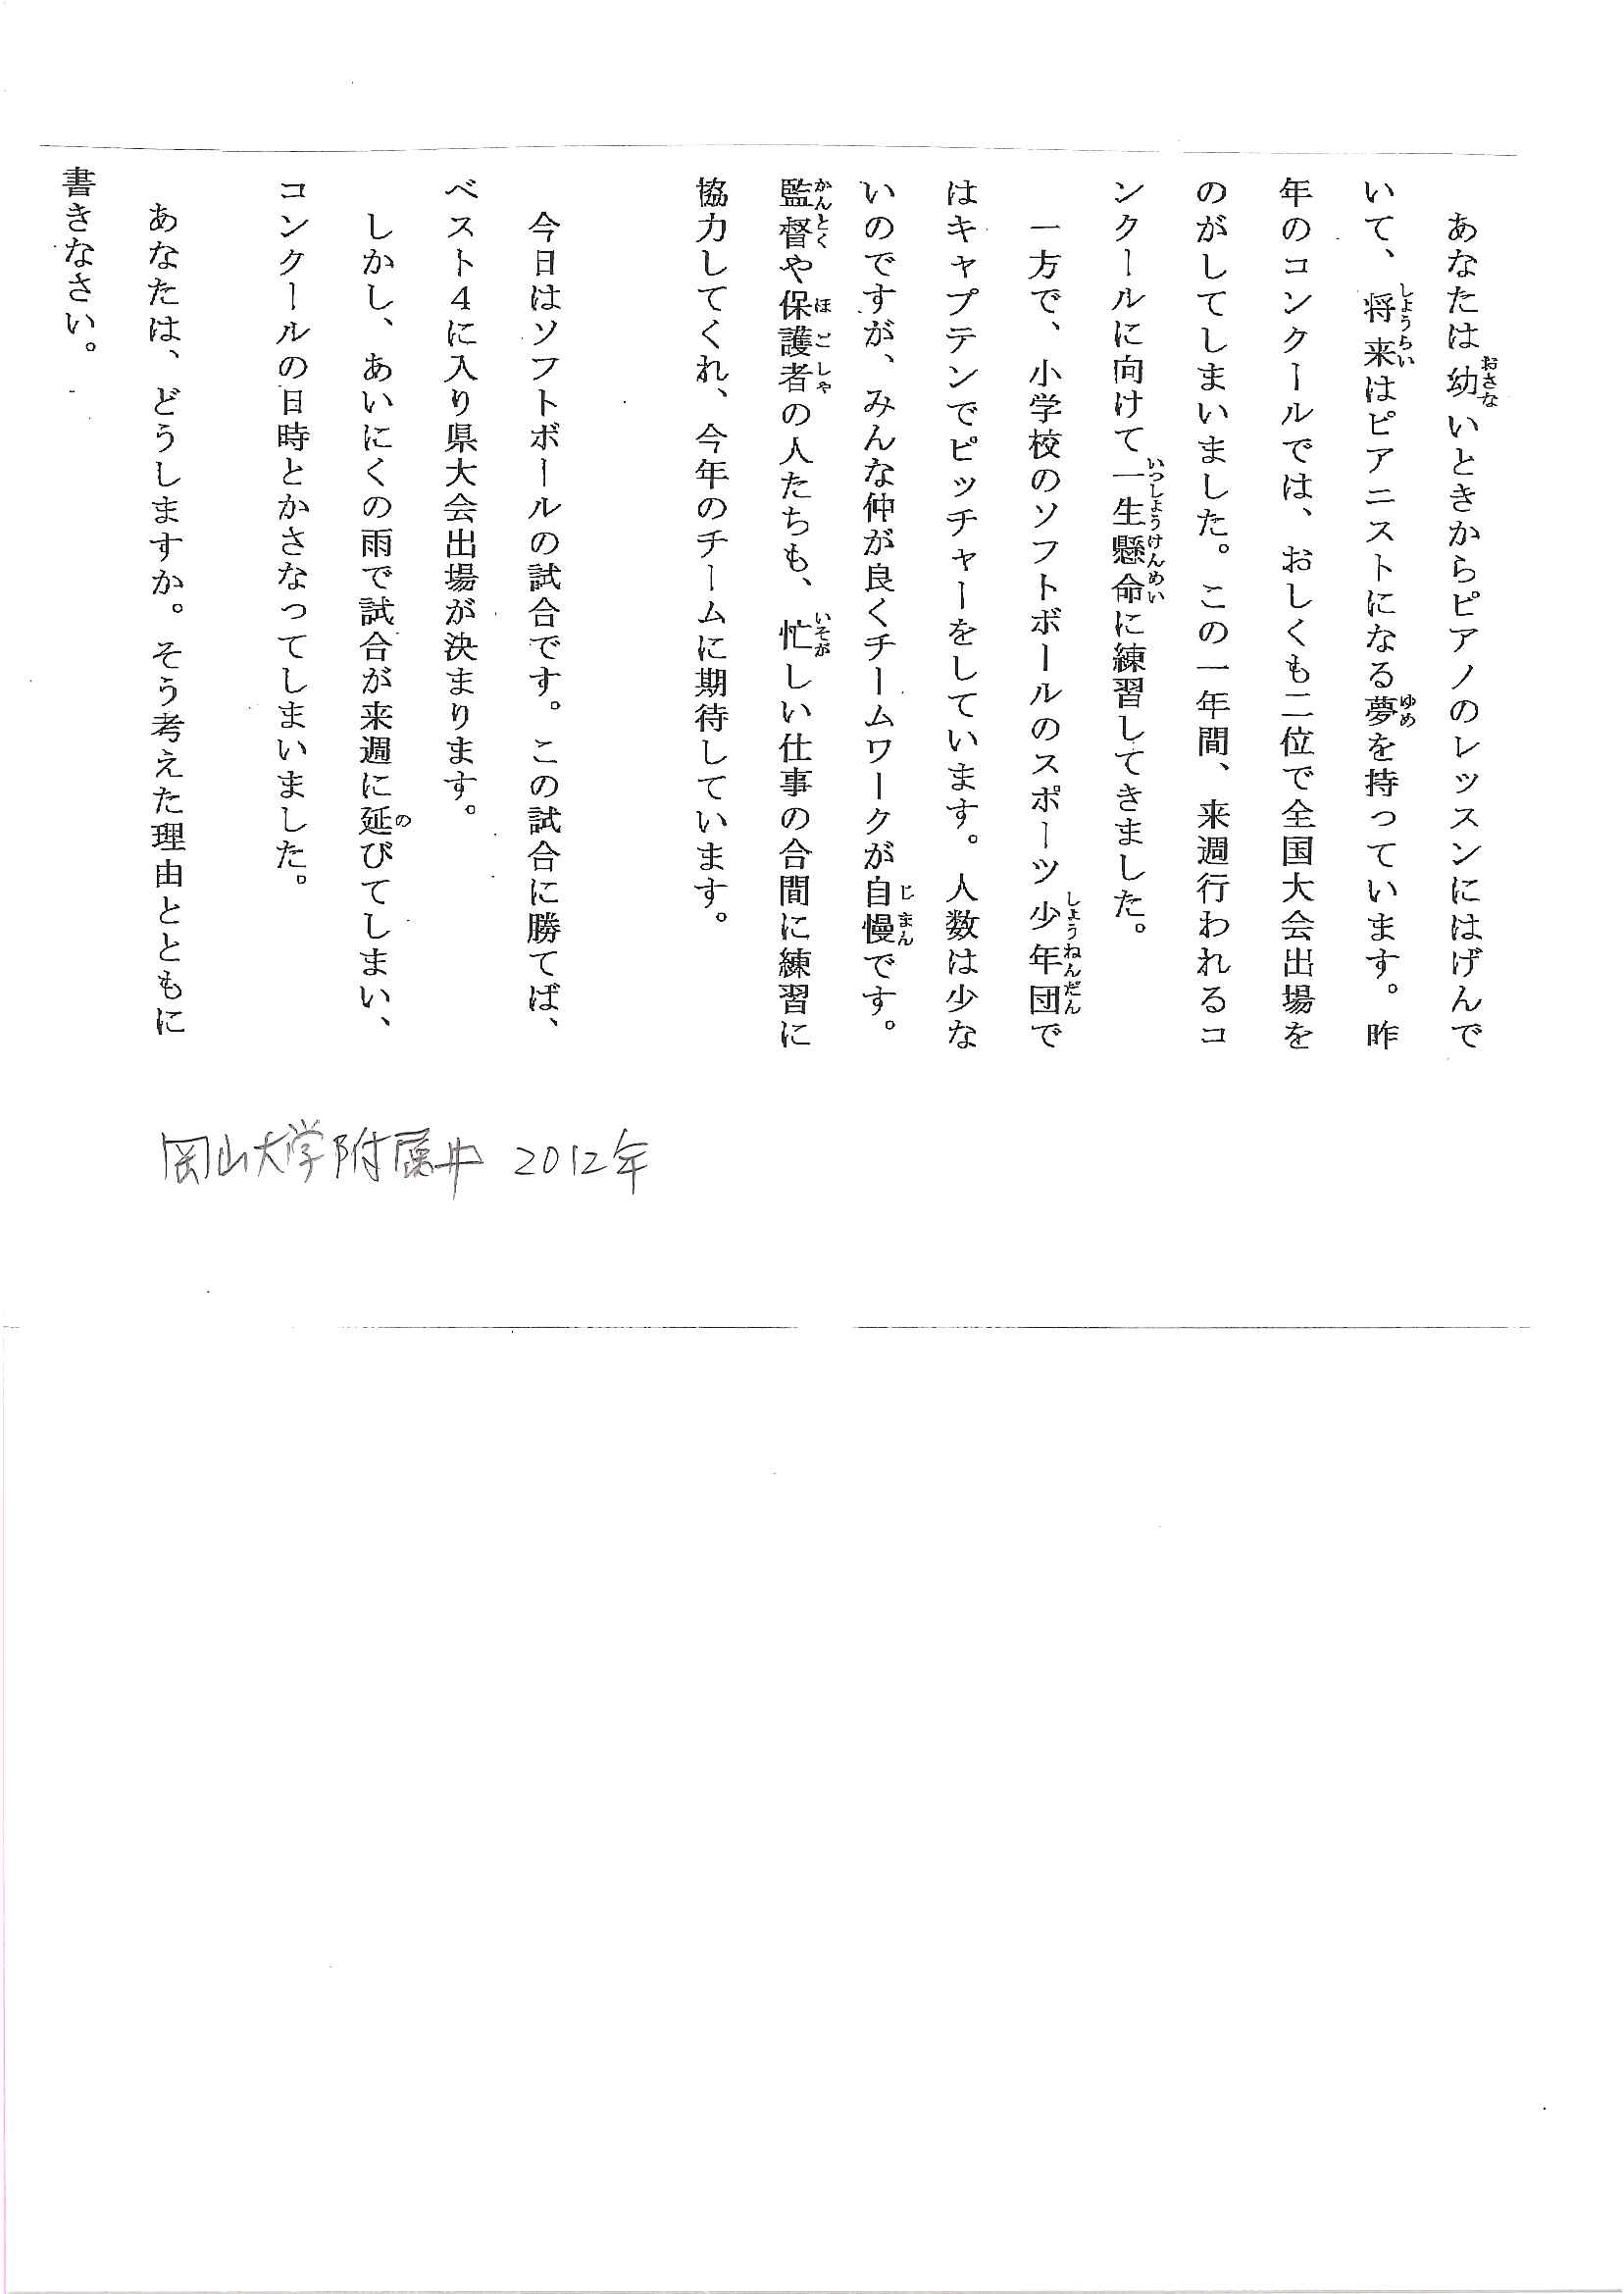 あなたは幼いときからピアノのレッスンにはげんで
いて、将来はピアニストになる夢を持っています。昨
年のコンクールでは、おしくも二位で全国大会出場を
のがしてしまいました。この一年間、来週行われるコ
ンクールに向けて一生懸命に練習してきました。
一方で、小学校のソフトボールのスポーツ少年団で
はキャプテンでピッチャーをしています。人数は少な
いのですが、みんな仲が良くチームワークが自慢です。
監督や保護者の人たちも、忙しい仕事の合間に練習に
協力してくれ、今年のチームに期待しています。
今日はソフトボールの試合です。この試合に勝てば、
ベスト4に入り県大会出場が決まります。
しかし、あいにくの雨で試合が来週に延びてしまい、
コンクールの日時とかさなってしまいました。
あなたは、どうしますか。そう考えた理由とともに
書きなさい。
岡山大学附属中 2012年